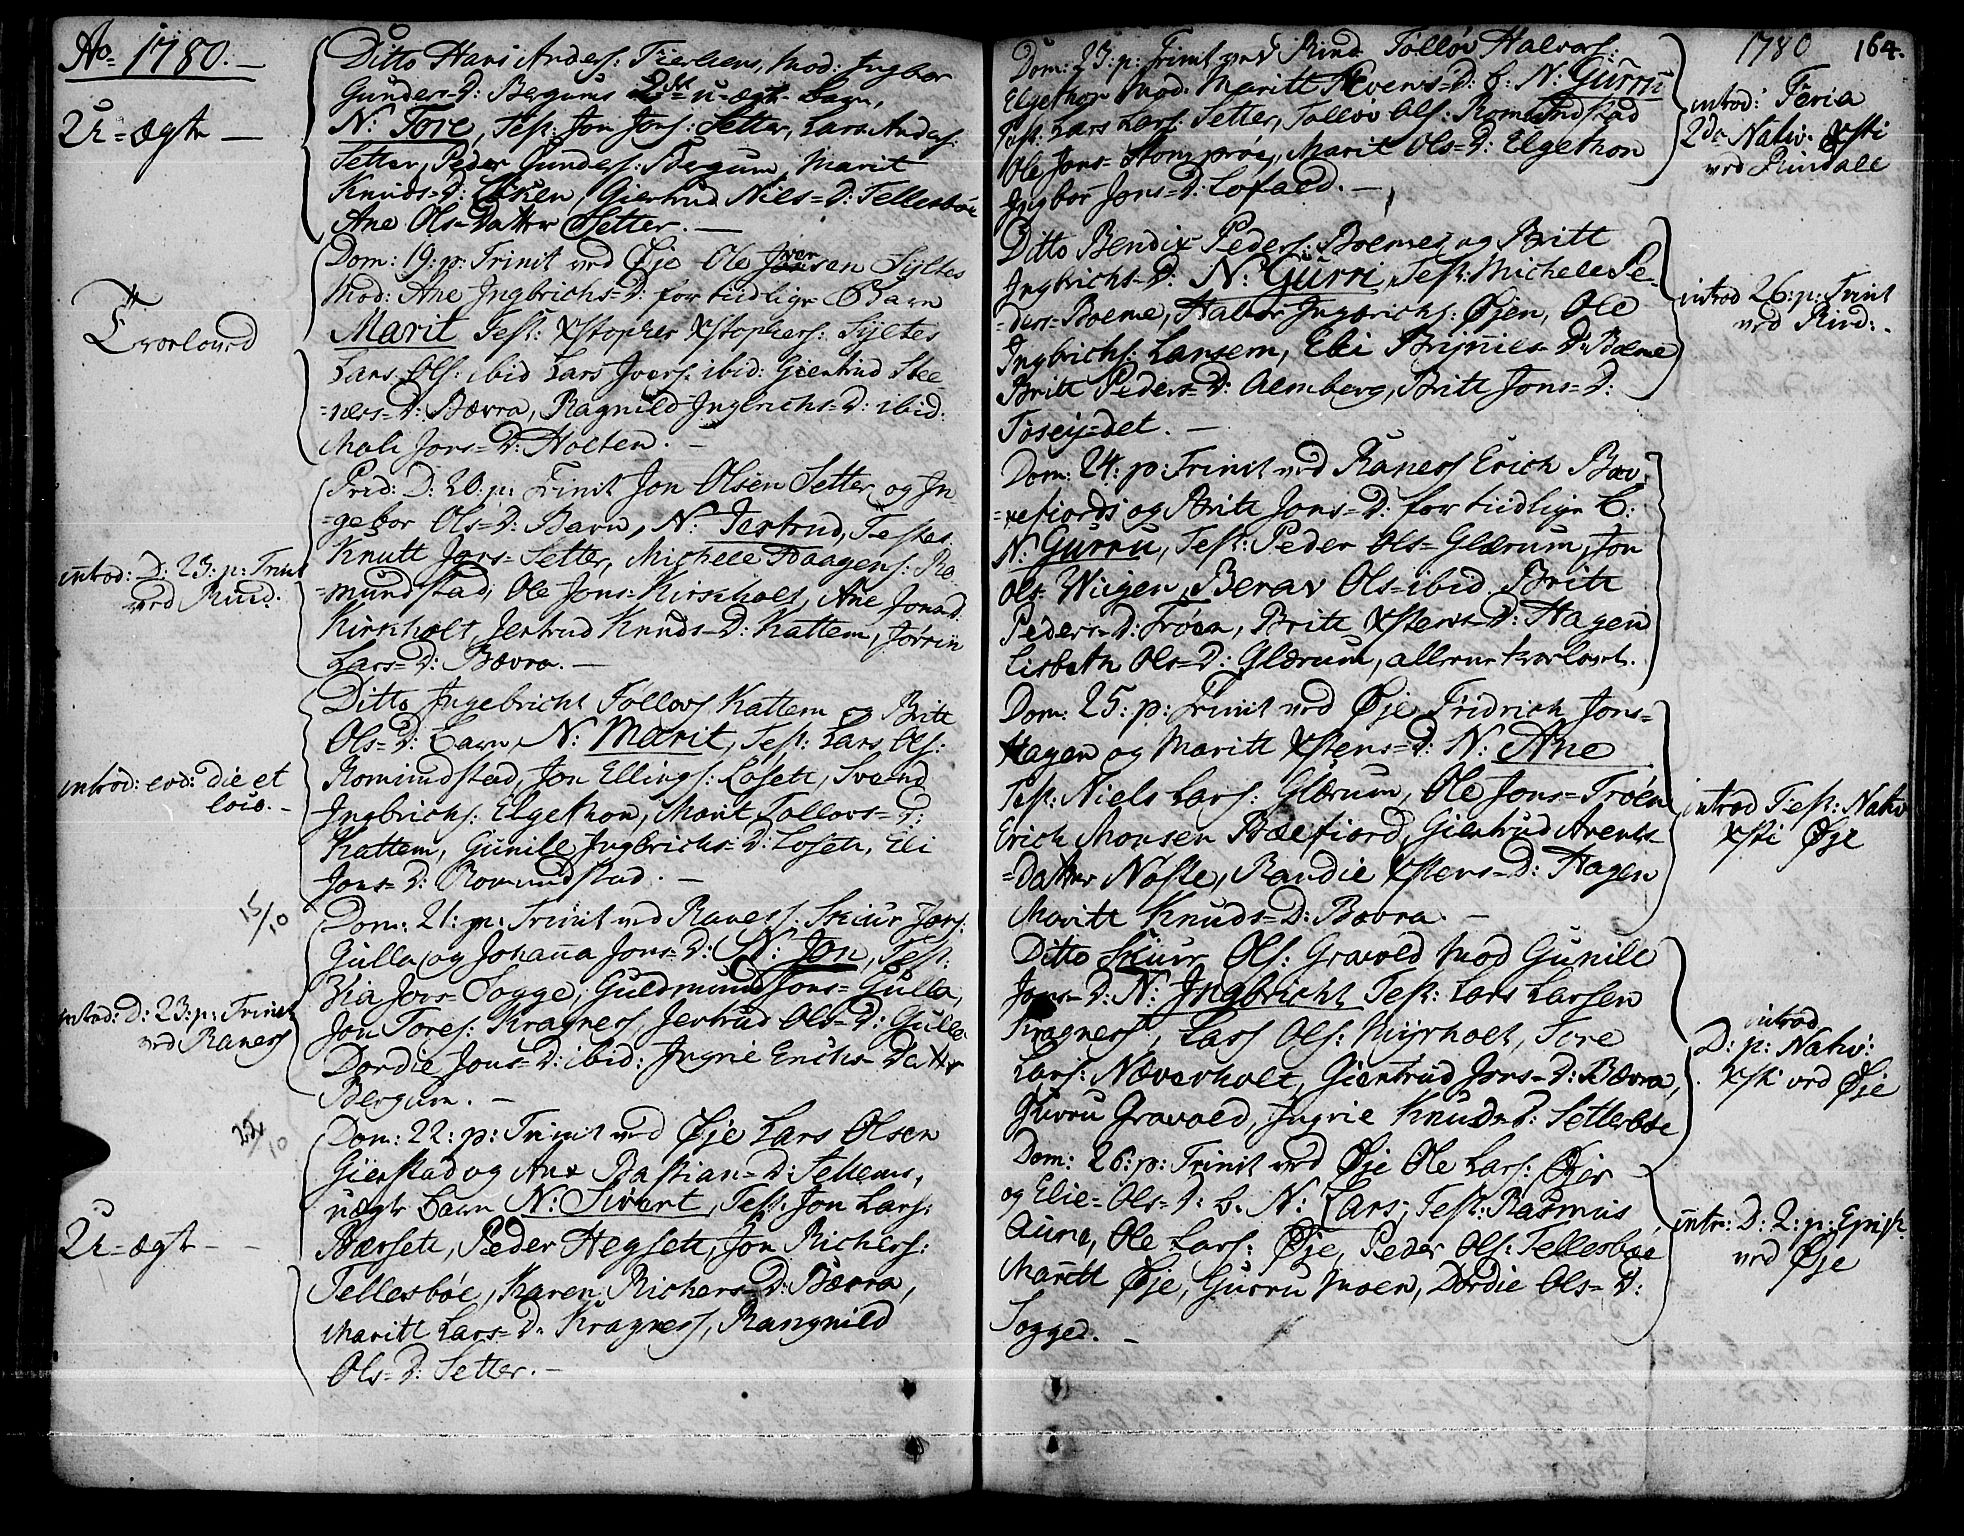 Ao 1780.
Ditto Hans Anders: Fiskens, Mod: Ingbor
Gunders=D: Bergums 2det u-ægte Barn,
2 U=ægte —
N: Tore, Test: Jon Jons: Setter, Lars Anders:
Setter, Peder Gunders: Bergum, Marit
Knuds=D: Giertrud Niels=D: Tellesböe
Ane Ols=Datter Setter. —
Dom: 19: p: Trinit ved Øje Ole Iversen Sÿltes
Mod: Ane Ingbrichs=D: for tiidlige Barn
Trorloved
Marit Test: Xstopher Xstophers: Sÿltes
Lars Ols: ibid Lars Ivers: ibid: Giertrud Ste=
=ners=D: Bævra, Ragnild Ingbrichs=D: ibid:
Mali Jons=D: Holten. —
Prid: D: 20: p: Trinit Jon Olsen Setter og In
=gebor Ols=D: Barn, N: Jertrud, Testes
Knutt Jons= Setter, Michele Haagens: Ro
introd: D: 23: p: Trinit
ved Rind:
=mundstad, Ole Jons= Kirkholt, Ane Jonsd
Kirkholt, Jertrud Knuds=D: Kattem, Jörrin
Lars=D: Bævra. —
Ditto Ingebricht Follovs Kattem og Britt
Ols=D: Barn, N: Marit, Test: Lars Ols:
introd: eod: die et
loco. —
Romundstad, Jon Ellings: Losete, Svend
Ingbrichs: Elgethon, Marit Follovs=D:
Kattem, Gunild Ingbrichs=D: Losete, Eli
Jons=D: Romundstad. —
15/10
Dom: 21: p: Trinit ved Ranes: Skiur Jons:
Gulla og Johanna Jons=D: N: Jon, Test:
Jors= Sogge, Guldmund Jons= Gulla,
introd: D: 23: p: Trinit
ved Ranes
Jon Tores: Kragness, Jertrud Ols=D: Gulla
Dordie Jons=D: ibid: Ingrie Erichs Datter
Bergum. —
22/10
Dom: 22: p: Trinit ved Øje Lars Olsen
Gierstad og Ane Bastian=D: Tellems,
uægte Barn N: Sivert, Test: Jon Lars:
2 U=ægte — —
Hærsete, Peder Hegsete, Jon Richers:
Tellesböe, Karen Richers=D: Bævra,
Maritt Lars=D: Kragness, Rangnild
Ols=D: Setter. —
1780 164.
Dom: 23: p: Trinit ved Rind Follov Halvors:
Elgethon Mod: Maritt Evens=D: B: N: Gurri
Test: Lars Lars: Setter, Follov Ols: Romundstad
Ole Jons= Marit Ols=D: Elgethon
Ingbor Jons=D: Lofald. —
introd: Feria
2da Nativ: Xsti
ved Rindale
Ditto Bendix Peders: Boemes og Britt
Ingbrichs=D: N: Gurri, Test: Michele Pe=
=ders= Boeme, Halvor Ingbrichs: Øjen, Ole
Ingbrichs: Lansem, Eli Brÿnils=D: Bolme
Britt Peders=D: Almberg, Britt Jons=D:
Toseÿ=det. —
introd 26: p: Trinit
ved Rind:.
Dom: 24: p: Trinit ved Raness Erich Bæv=
=refiords og Britt Jons=D: for tiidlige B:
N: Gurru, Test: Peder Ols= Glærum, Jon
Ols= Wiigen, Berav Ols= ibid. Britt
Peders=D: Tröen, Britt Xstens=D: Hagen
Lisbeth Ols=D: Glærum, allene trorlovet.
Dom: 25: p: Trinit ved Øje Fridrich Jons=
Hagen og Maritt Xstens=D: N: Ane
Test: Niels Lars: Glærum, Ole Jons= Tröen
Erich Monsen Bælefiord, Giertrud Arents=
=Datter Nöste, Randie Xstens=D: Hagen
Maritt Knuds=D: Bævra. —
introd Fest: Nativ
Xsti Øje
Ditto Skiurr Ols: Gravold Mod Gunild
Jons=D: N: Ingbricht Test: Lars Larsen
Kragness, Lars Ols: Mÿrholt, Tore
Lars: Næverholt, Giertrud Jons=D: Bævra,
Gurru Gravold, Ingrie Knuds D: Settersböe
introd
D: p: Nativ:
Xsti ved Øje
Dom: 26: p: Trinit ved Øje Ole Lars: Øje
og Elie= Ols=D: B. N: Lars; Test: Rasmus
Aune, Ole Lars: Øje, Peder Ols: Tellesböe
Maritt Øje, Gurru Moen, Dordie Ols=D:
Sogged. —
intr: D: 2: p: Epiph
ved Øje